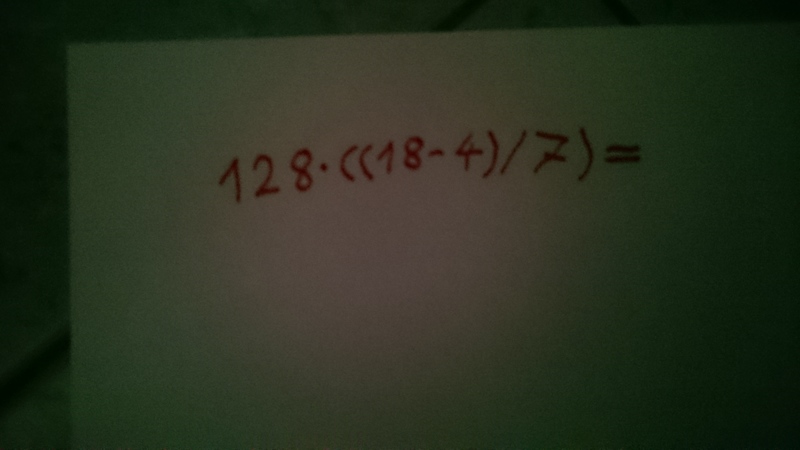 128·((18-4)/7)=